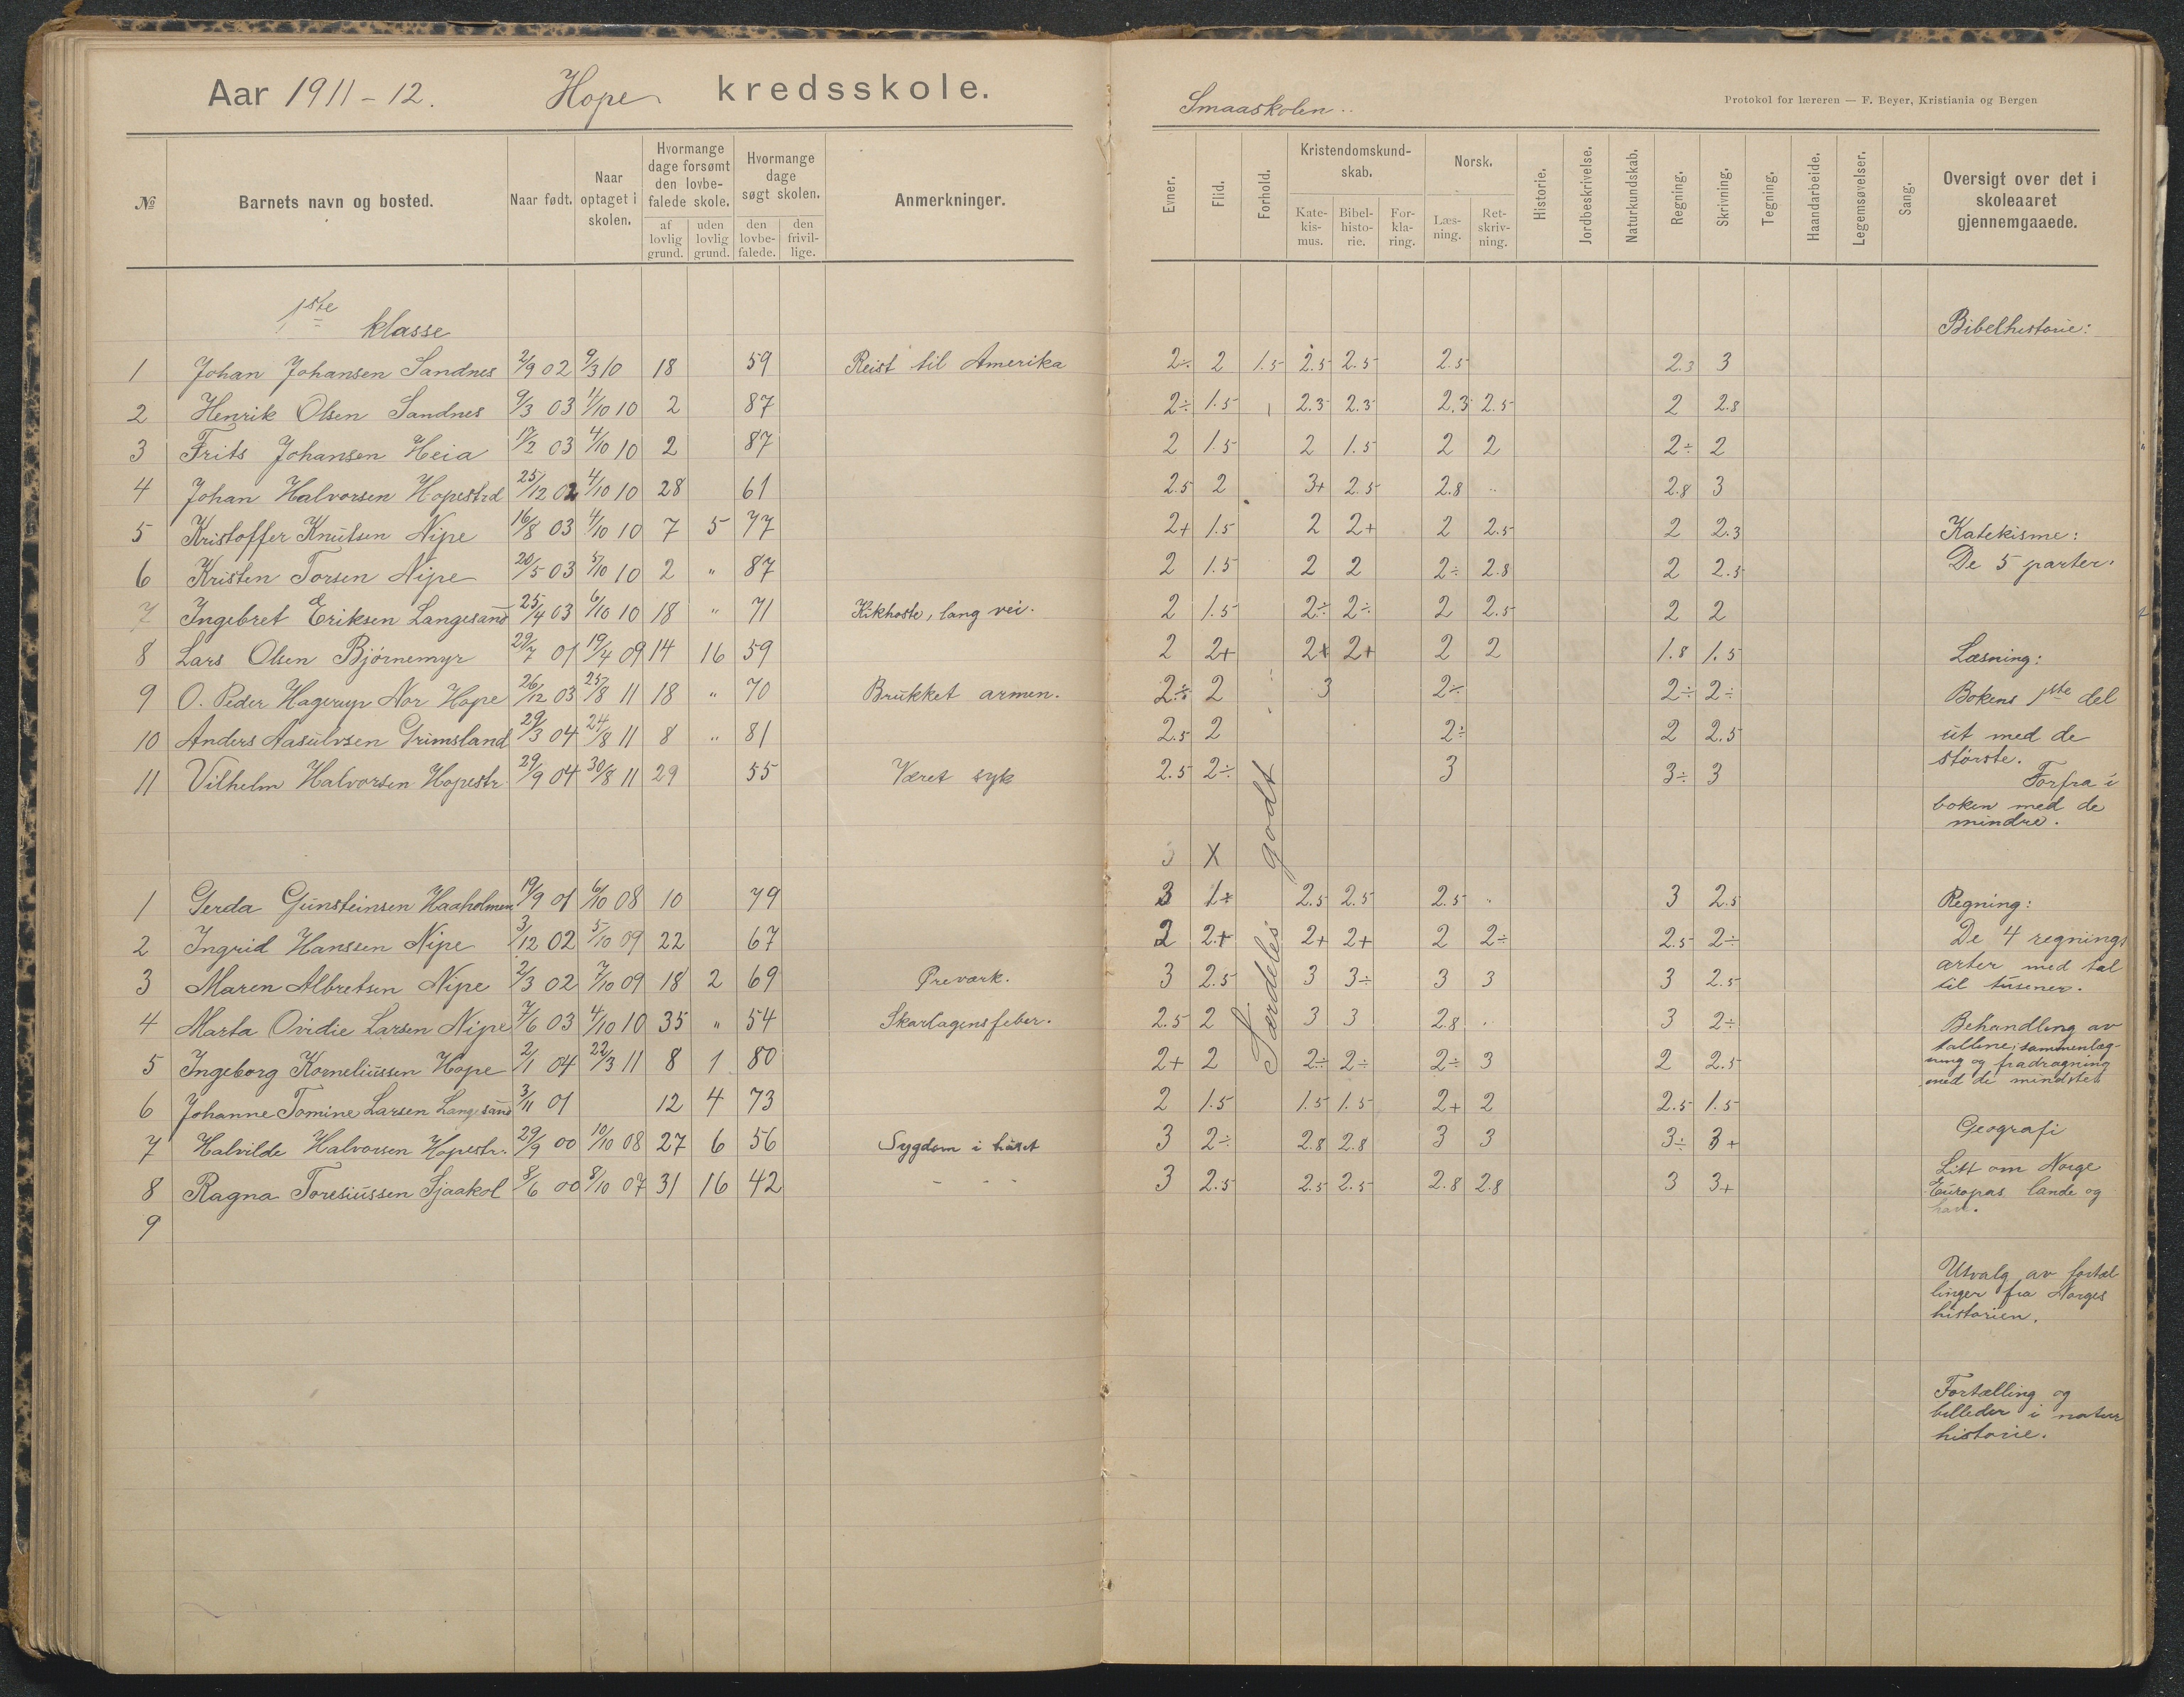 Aar 1911-12. Hope kredsskole.
Smaaskolen..
Protokol for læreren — F. Beyer, Kristiania og Bergen
№ Barnets navn og bosted. Naar født. Naar optaget i skolen. Hvormange dage forsømt den lovbefalede skole. af lovlig grund. uden lovlig grund. Hvormange dage søgt skolen. den lovbefalede. den frivillige. Anmerkninger.
Evner. Flid. Forhold. Kristendomskundskab. Katekismus. Bibelhistorie. Forklaring. Norsk. Læsning. Retskrivning. Historie. Jordbeskrivelse. Naturkundskab. Regning. Skrivning. Tegning. Haandarbeide. Legemsøvelser. Sang. Oversigt over det i skoleaaret gjennemgaaede.
1ste klasse
1 Johan Johansen Sandnes 2/9 02 9/3 10 18 59 Reist til Amerika 2÷ 2 1.5 2.5 2.5 2.5 2.3 3
2 Henrik Olsen Sandnes 9/3 03 4/10 10 2 87 2÷ 1.5 2.3 2.3 2.3 2.5 2 2.8
3 Frits Johansen Heia 17/2 03 4/10 10 2 87 2 1.5 2 1.5 2 2 2÷ 2
4 Johan Halvorsen Hopestrd 25/12 02 4/10 10 28 61 2.5 2 3+ 2.5 2.8 .. 2.8 3
5 Kristoffer Knutsen Nipe 16/8 03 4/10 10 7 5 77 2+ 1.5 2 2+ 2 2.5 2 2.3
6 Kristen Torsen Nipe 20/5 03 5/10 10 2 " 87 2 1.5 2 2 2÷ 2.8 2 2.5
7 Ingebret Eriksen Langesand 25/4 03 6/10 10 18 " 71 Kikhoste, lang vei. 2 1.5 2÷ 2÷ 2 2.5 2 2
8 Lars Olsen Bjørnemyr 29/7 01 19/4 09 14 16 59 2 2+ 2+ 2+ 2 2 1.8 1.5
9 O. Peder Hagerup Nor Hope 26/12 03 25/8 11 18 " 70 Brukket armen. 2÷ 2 3 2÷ 2÷ 2÷
10 Anders Aasulvsen Grimsland 29/3 04 24/8 11 8 " 81 2.5 2 2÷ 2 2.5
11 Vilhelm Halvorsen Hopestr. 29/9 04 30/8 11 29 55 Været syk 2.5 2÷ 3 3÷ 3
X
Særdeles godt
1 Gerda Gunsteinsen Haaholmen 19/9 01 6/10 08 10 79 3 1+ 2.5 2.5 2.5 3 2.5
2 Ingrid Hanssen Nipe 3/12 02 5/10 09 22 67 2 2+ 2+ 2+ 2 2÷ 2.5 2÷
3 Maren Albretsen Nipe 2/3 02 7/10 09 18 2 69 Øreværk. 3 2.5 3 3÷ 3 3 3 2.5
4 Marta Ovidie Larsen Nipe 7/6 03 4/10 10 35 " 54 Skarlagensfeber. 2.5 2 3 3 2.8 3 2÷
5 Ingeborg Korneliussen Hope 2/1 04 22/3 11 8 1 80 2+ 2 2÷ 2÷ 2÷ 3 2 2.5
6 Johanne Tomine Larsen Langesand 3/11 01 12 4 73 2 1.5 1.5 1.5 2+ 2 2.5 1.5
7 Halvilde Halvorsen Hopestr. 29/9 00 10/10 08 27 6 56 Sygdom i huset 3 2÷ 2.8 2.8 3 3 3÷ 3+
8 Ragna Toresiussen Sjaakol 8/6 00 8/10 07 31 16 42 - - - 3 2.5 2.5 2.5 2.8 2.8 3 3+
9
Bibelhistorie:
Katekisme:
De 5 parter.
Læsning:
Bokens 1ste del
ut med de
største.
Forfra i
boken med de
mindre.
Regning:
De 4 regnings
arter med tal
til tusener.
Behandling av
tallene; sammenlæg-
ning og fradragning
med de mindste
Geografi
Litt om Norge
Europas lande og
hav.
Utvalg av fortæl
linger fra Norges
historien.
Fortælling og
billeder i natur
historie.